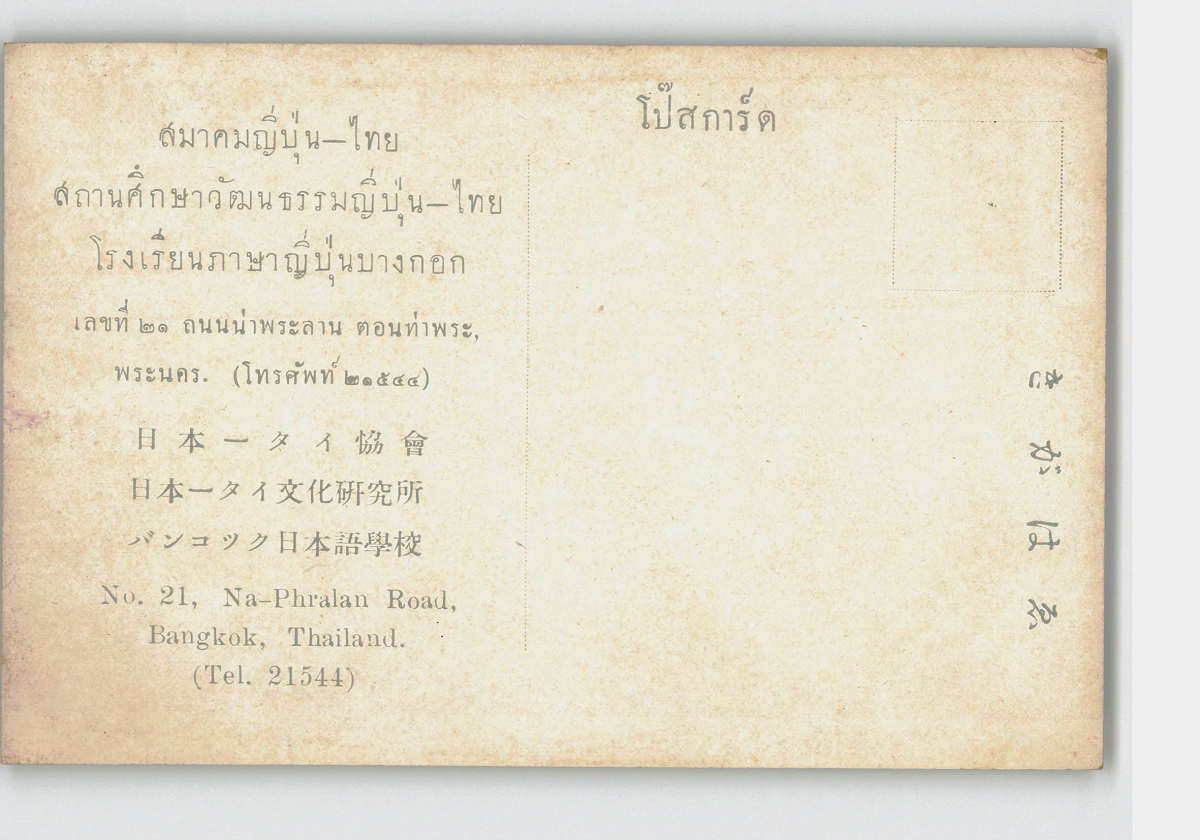 สมาคมญี่ปุ่น—ไทย
สถานศึกษาวัฒนธรรมญี่ปุ่น—ไทย
โรงเรียนภาษาญี่ปุ่นบางกอก
เลขที่ ๒๑ ถนนน่าพระลาน ตอนท่าพระ,
พระนคร. (โทรศัพท์ ๒๑๕๔๔)
日本ータイ協會
日本ータイ文化硏究所
バンコツク日本語學校
No. 21, Na-Phralan Road,
Bangkok, Thailand.
(Tel. 21544)
โป๊สการ์ด
ゑはがき